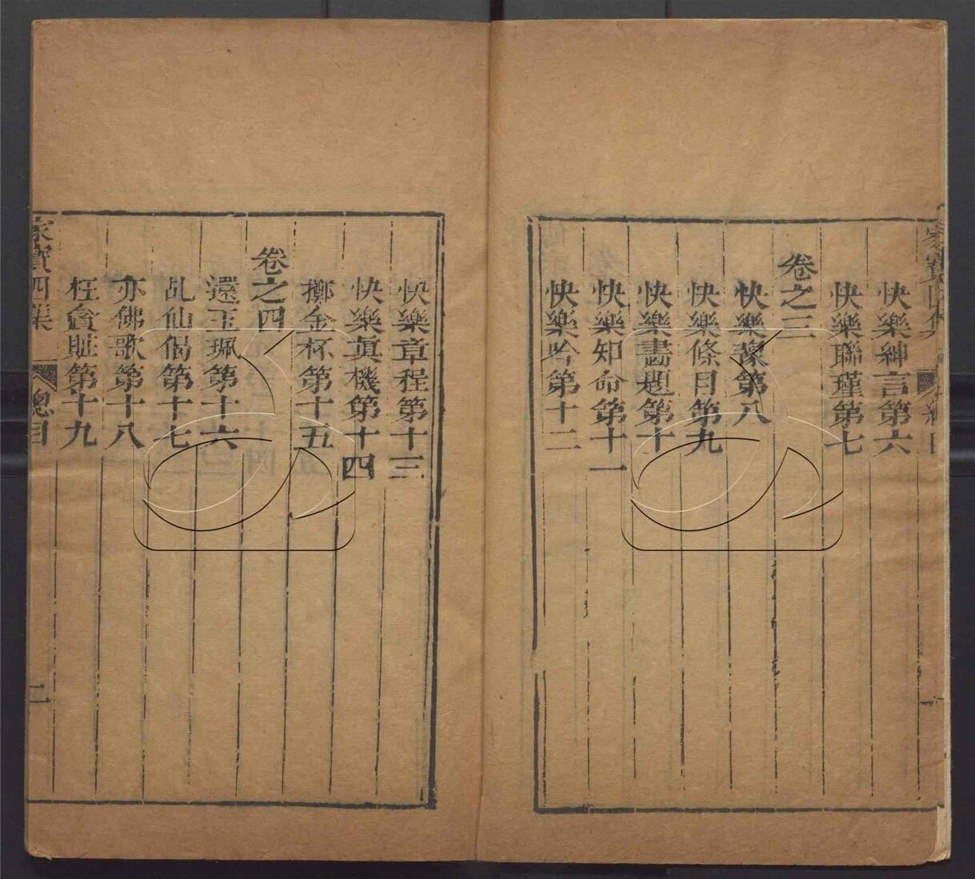 家寶四集
總目
一
快樂紳言第六
快樂聯瑾第七
卷之三
快樂㨾第八
快樂條目第九
快樂畵題第十
快樂知命第十一
快樂吟第十二
快樂章程第十三
快樂真機第十四
擲金杯第十五
卷之四
還玉珮第十六
乩仙偈第十七
亦佛歌第十八
枉貪賍第十九
家寶四集
總目
二